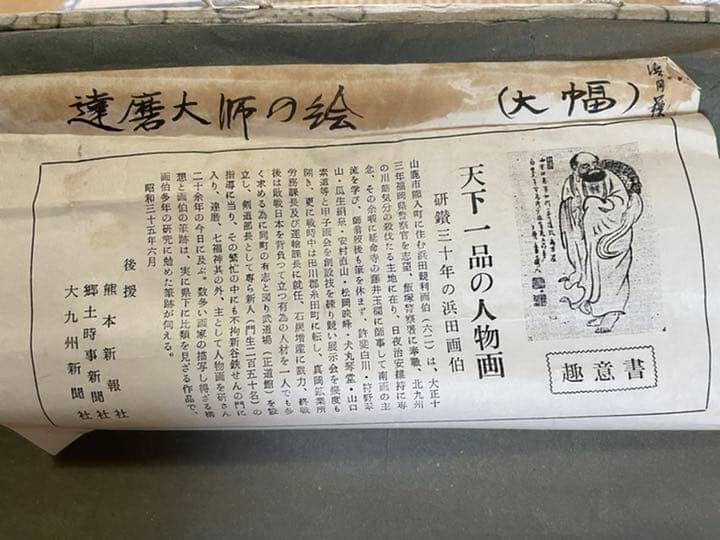 達磨大師の絵 (大幅)
趣意書
天下一品の人物画
研鑽三十年の浜田画伯
山鹿市熊入町に住む浜田観利画伯(六二)は、大正十
三年福岡県警察官を志望、飯塚警察署に奉職、北九州
の川筋気分の殺伐たる土地に在り、日夜治安維持に専
念、その余暇に延命寺の藤井玉欄に師事して南画の主
流を学び、師翁歿後も筆を休まず、許斐白川・狩野
山・瓜生絹泉・安村直山・松岡映峰・犬丸琴堂・山口
素道等と甲子画会を創設技を練り競い展示会を幾度も
開き、更に戦時中は田川郡糸田町に転し、真岡鉱業所
労務課長及び運輸課長に就任、石炭増産に敢力、終戦
後は敗戦日本を背負つて立つ有為の人材を一人でも多
く求める為に同町の有志と図り武道場(正道館)を設
立し、剣道部長として専ら新人(門生二百五十名)の
指導に当り、その繁忙の中にも不拘新谷鉄せんの門に
入り、達磨、七福神其の外、主として人物画を研さん
二十余年の今日に及ぶ。数多い画家の描写し得ざる構
想と画伯の筆跡は、実に県下に比類を見ざる作品で、
画伯多年の研究に勉めた筆跡が伺える。
昭和三十五年六月
後援
熊本新報社
郷土時事新聞社
大九州新聞社